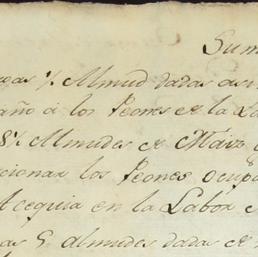 Sum
½ Almud dadas as
año à los Peones de la La
8½ Almudes de Maiz
cionar los Peones Ocup
Acequia en la Labor
as 5 almudes dadas